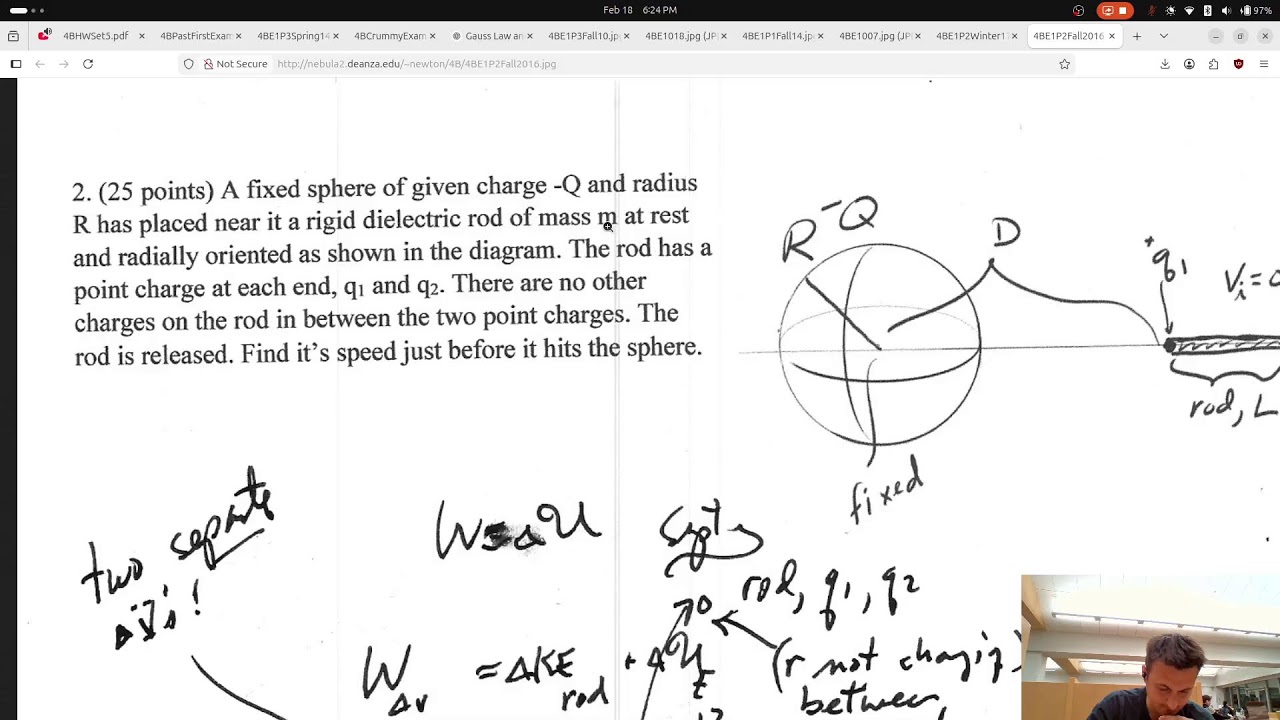 Feb 18 6:24 PM
97%
4BHWSet5.pdf
4BPastFirstExam
4BE1P3Spring14
4BCrummyExam
Gauss Law an
4BE1P3Fall10.jp
4BE1018.jpg (JP
4BE1P1Fall14.jp
4BE1007.jpg (JP
4BE1P2Winter1
4BE1P2Fall2016
Not Secure
http://nebula2.deanza.edu/~newton/4B/4BE1P2Fall2016.jpg
2. (25 points) A fixed sphere of given charge -Q and radius
R has placed near it a rigid dielectric rod of mass m at rest
and radially oriented as shown in the diagram. The rod has a
point charge at each end, q₁ and q₂. There are no other
charges on the rod in between the two point charges. The
rod is released. Find it's speed just before it hits the sphere.
R
-Q
D
+q₁
rod, L
fixed
two separate
rod, q₁, q₂
W = ΔKE rod
(r not changing
between